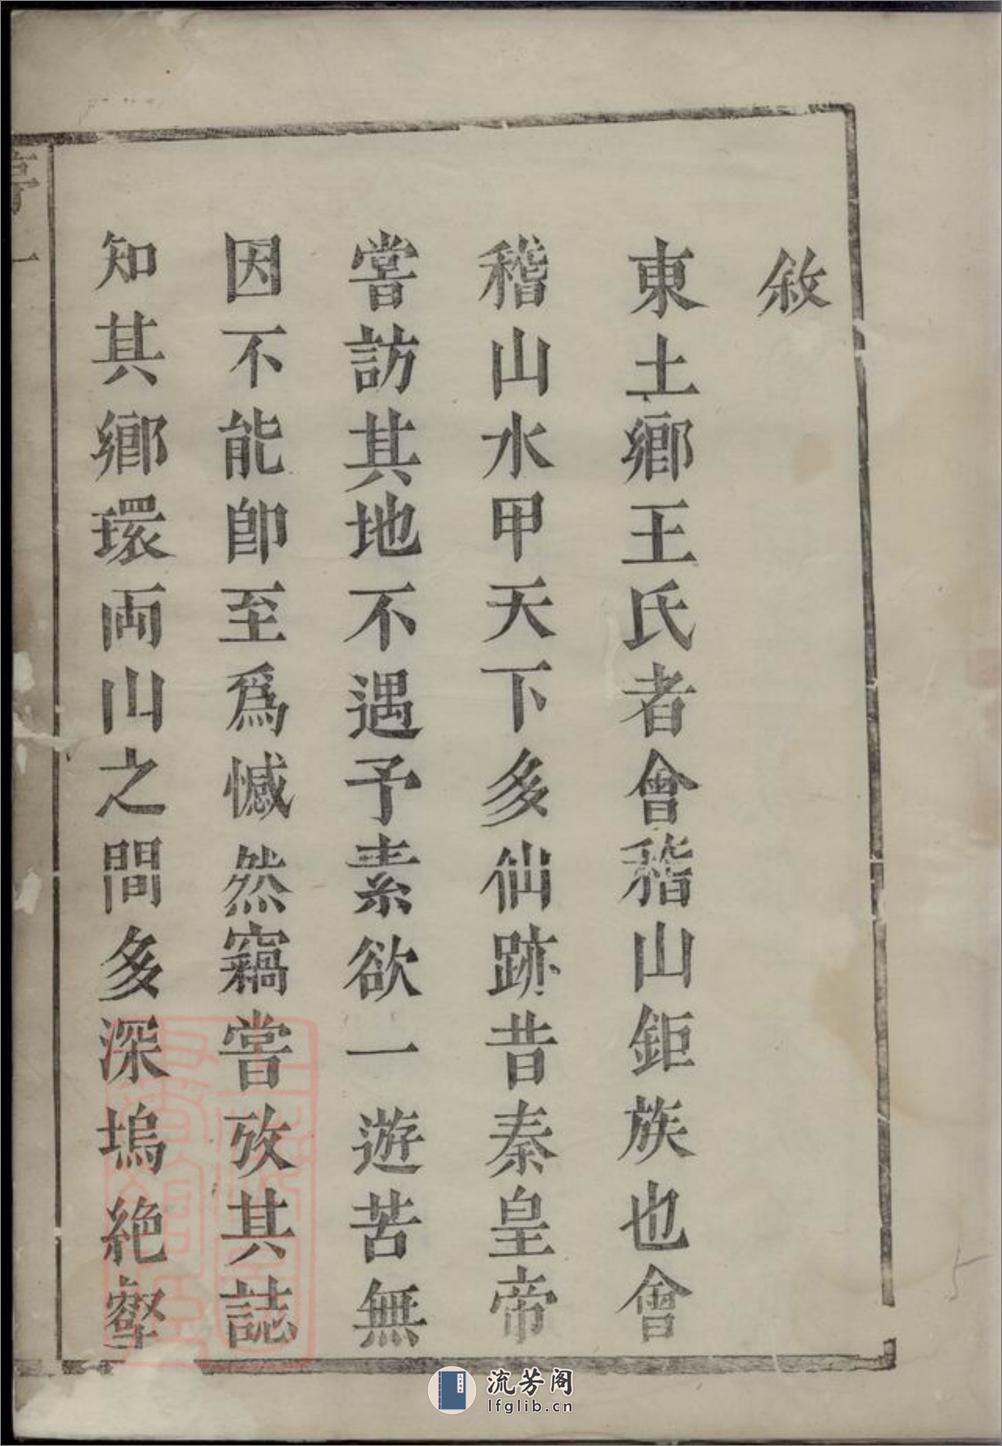 敘
東土鄉王氏者會稽山鉅族也會
稽山水甲天下多仙跡昔秦皇帝
嘗訪其地不遇予素欲一遊苦無
因不能卽至爲憾然竊嘗攷其誌
知其鄉環両山之間多深塢絕壑
流芳阁
lfglib.cn